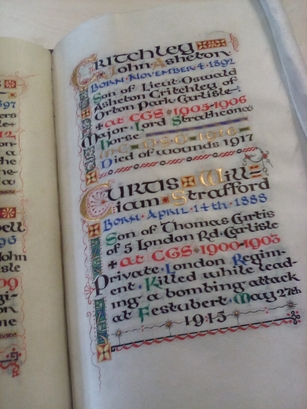 Critchley
John Asheton
Born November 4 1892
Son of Lieut Oswald
Asheton Critchley of
Orton Park Carlisle
at CGS 1905-1906
Major Lord Strathcona
Horse
Died of wounds 1917
Curtis Will=
iam Strafford
Born April 14th 1888
Son of Thomas Curtis
of 5 London Rd. Carlisle
at CGS 1900-1903
Private London Regim-
ent. Killed while lead-
ing a bombing attack
at Festubert May 27th
1915